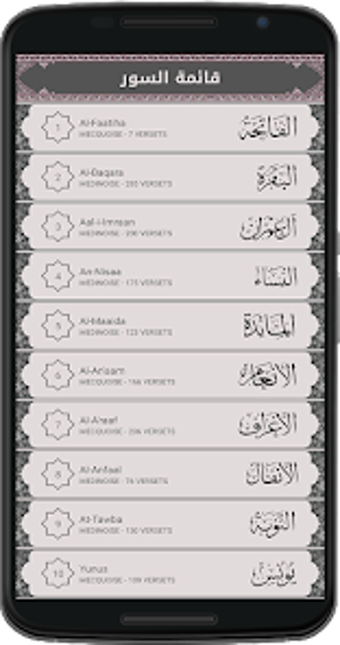 قائمة السور
1
Al-Faatiha
MECQUOISE - 7 VERSETS
الفاتحة
2
Al-Baqara
MEDINOISE - 285 VERSETS
البقرة
3
Aal-i-Imraan
MEDINOISE - 200 VERSETS
آل عمران
4
An-Nisaa
MEDINOISE - 175 VERSETS
النساء
5
Al-Maaida
MEDINOISE - 123 VERSETS
المائدة
6
Al-An'aam
MECQUOISE - 166 VERSETS
الأنعام
7
Al-A'raaf
MECQUOISE - 206 VERSETS
الأعراف
8
Al-Anfaal
MEDINOISE - 76 VERSETS
الأنفال
9
At-Tawba
MEDINOISE - 130 VERSETS
التوبة
10
Yunus
MECQUOISE - 109 VERSETS
يونس